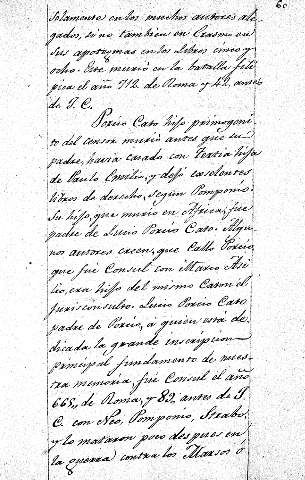 6
solamente en los muchos autores ale-
gados, sino tambien en Erasmo en
sus apotegmas en los libros cinco y
ocho. Este murió en la batalla
el año 712 de Roma y 42 antes
de J. C.
Porcio Cato hijo primogeni-
to del censor murio antes que su
padre, havia casado con Tertia hija
de Paulo Emilio, y dejó exselentes
libros de derecho, segun Pomponio.
Su hijo, que murio en Africa, fue
padre de Lucio Porcio Cato. Algu-
nos autores creen, que Callo Porcio,
que fue Consul con Marco Asi-
lio, era hijo del mismo Caton el
jurisconsulto. Lucio Porcio Cato
padre de Porcio, á quien está de-
dicada la grande inscripcion
principal fundamento de nues-
tra memoria, fue Consul el año
665, de Roma, y 89, antes de J.
C. con Neo, Pomponio, Strabo,
y lo mataron poco despues en
la guerra contra los Marsos o